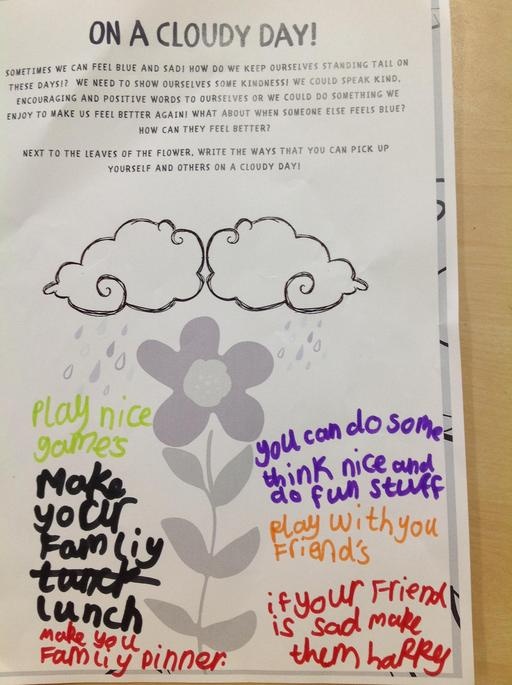 ON A CLOUDY DAY!
SOMETIMES WE CAN FEEL BLUE AND SAD! HOW DO WE KEEP OURSELVES STANDING TALL ON
THESE DAYS!? WE NEED TO SHOW OURSELVES SOME KINDNESS! WE COULD SPEAK KIND,
ENCOURAGING AND POSITIVE WORDS TO OURSELVES OR WE COULD DO SOMETHING WE
ENJOY TO MAKE US FEEL BETTER AGAIN! WHAT ABOUT WHEN SOMEONE ELSE FEELS BLUE?
HOW CAN THEY FEEL BETTER?
NEXT TO THE LEAVES OF THE FLOWER, WRITE THE WAYS THAT YOU CAN PICK UP
YOURSELF AND OTHERS ON A CLOUDY DAY!
Play nice
games
Make
your
Famliy
lunch
make you
Famliy Dinner.
you can do some
think nice and
do fun stuff
Play with you
Friend's
if your Friend
is sad make
them haPPy